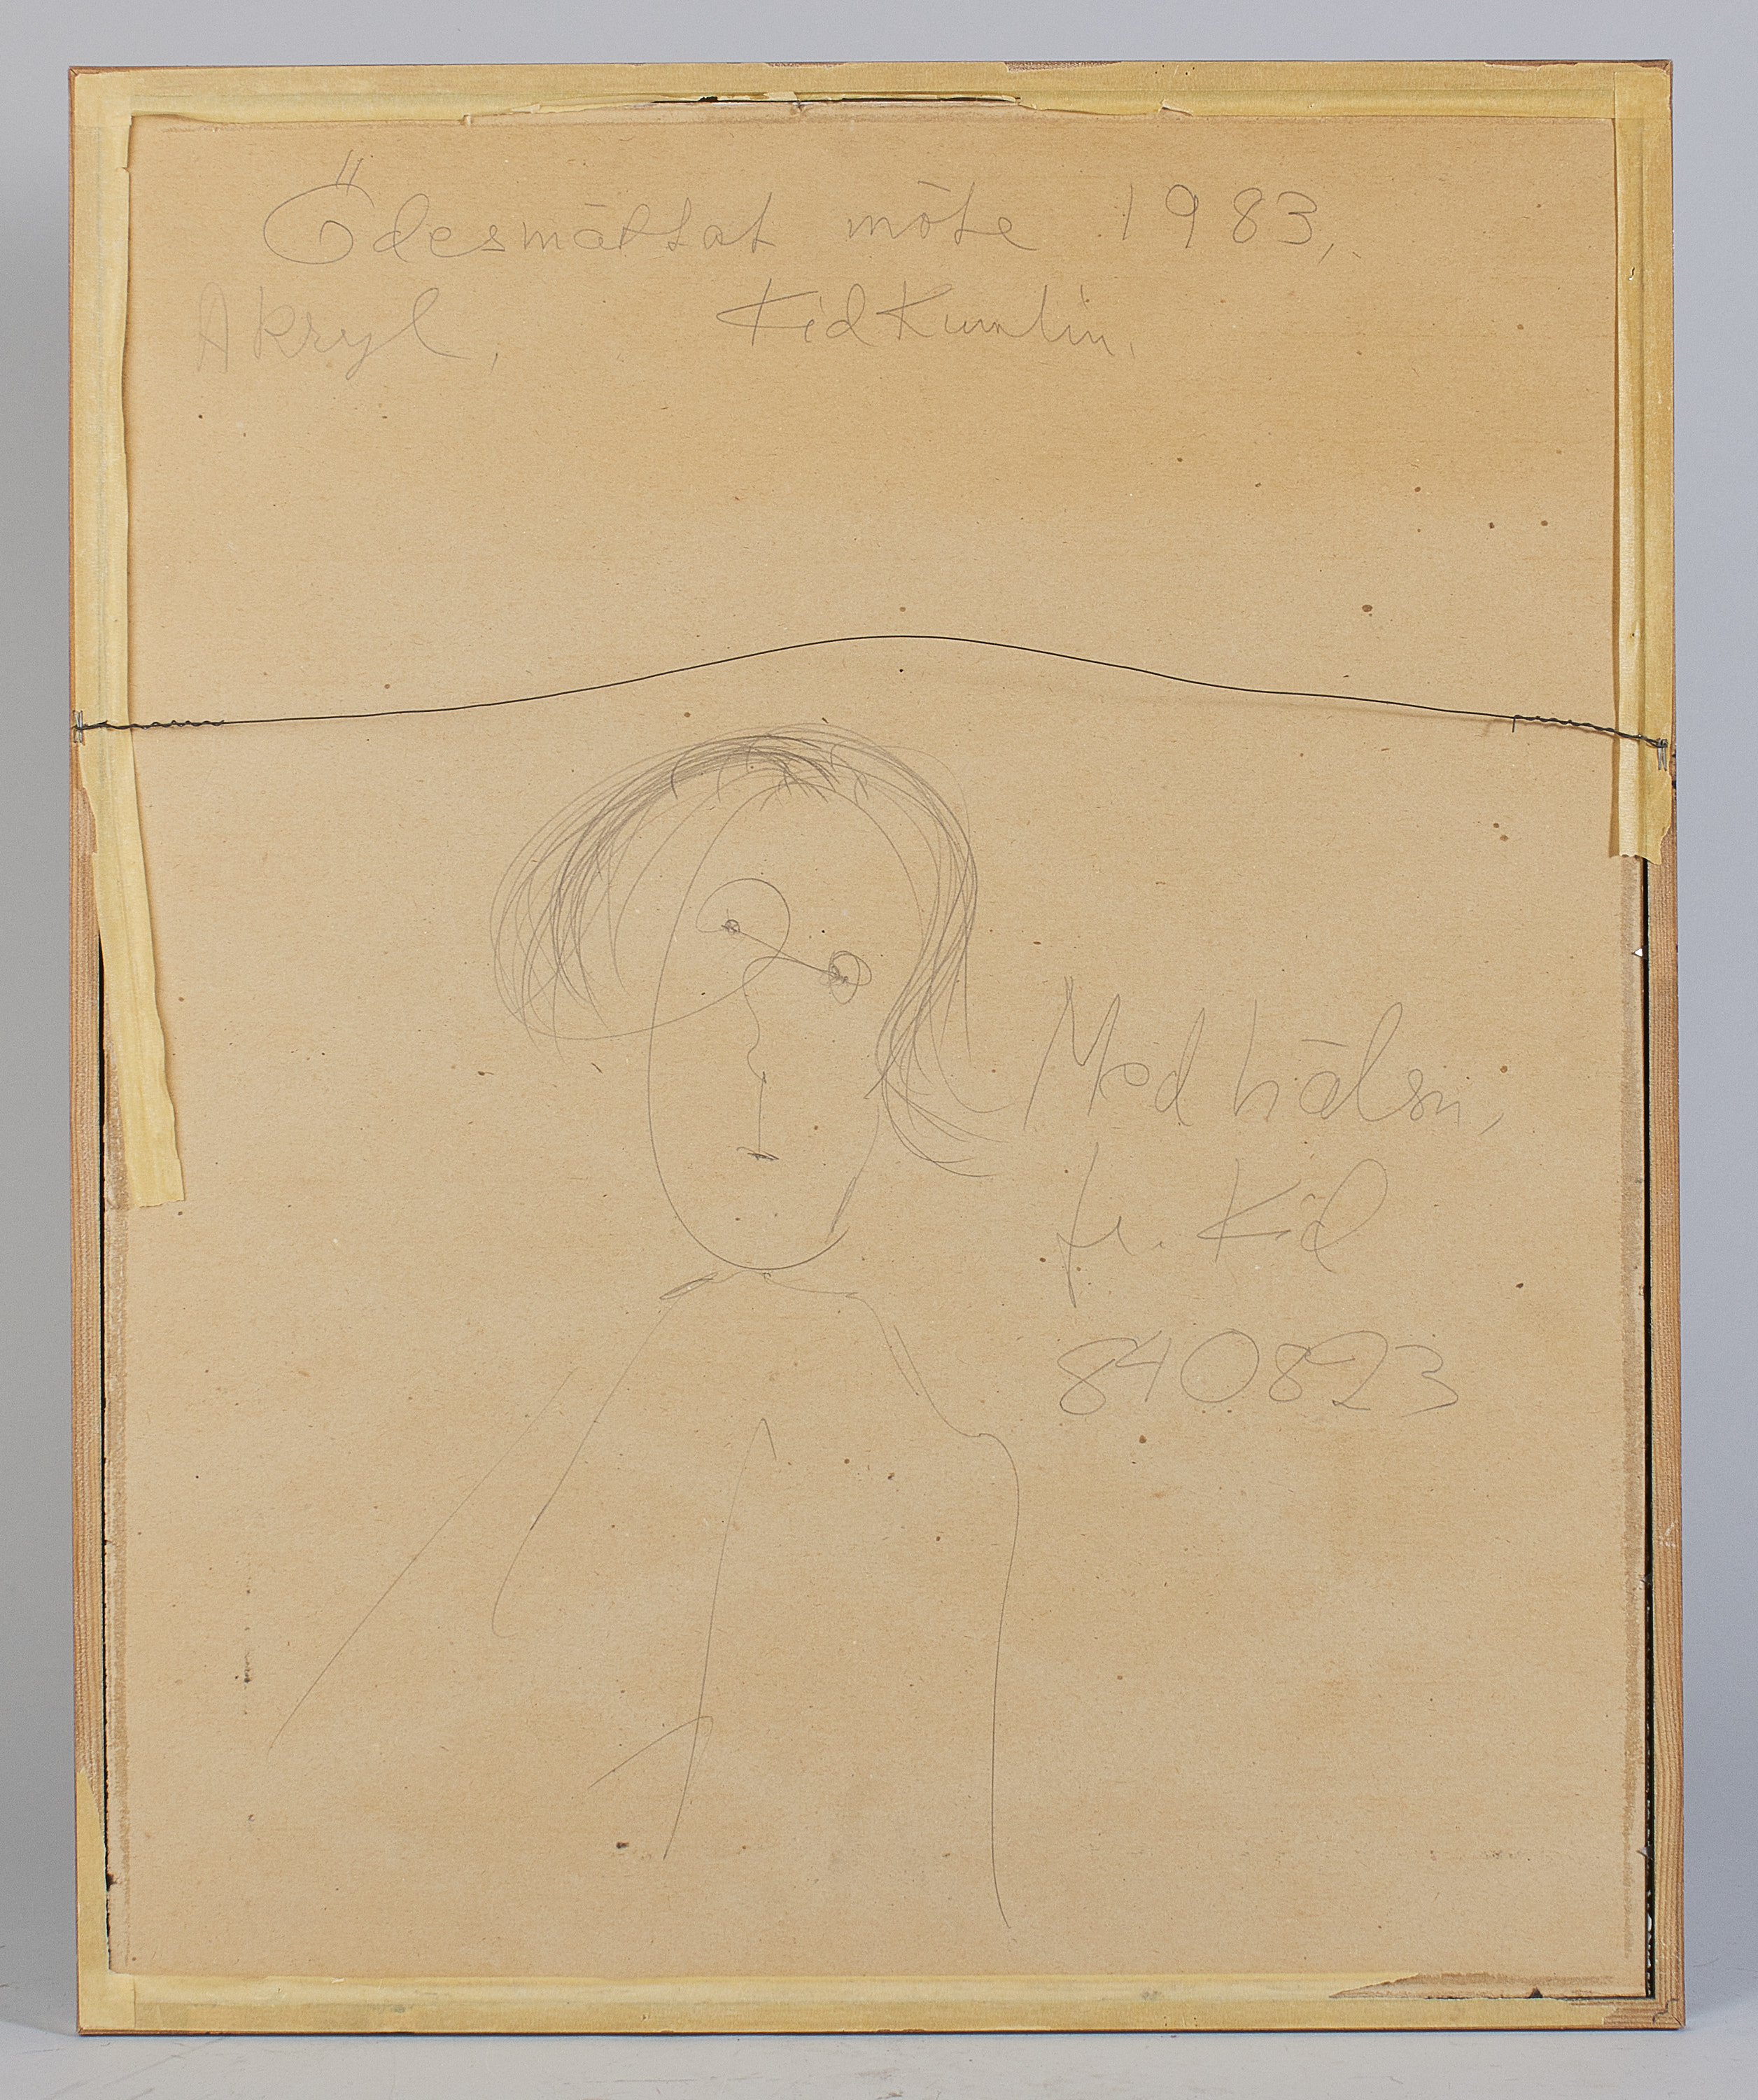 Ödesmättat möte 1983,
Akryl, Kid Kumlin.
Med hälsn,
fr. Kid
840823